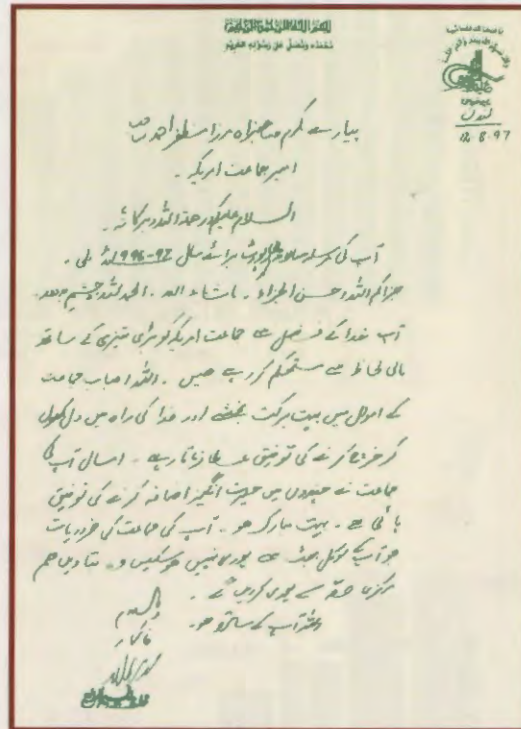 بسم اللہ الرحمن الرحیم
نحمدہ ونصلی علیٰ رسولہ الکریم
لندن
12.8.97
پیارے مکرم صاحبزادہ مرزا مظفر احمد صاحب
امیر جماعت امریکہ ۔
السلام علیکم ورحمۃ اللہ وبرکاتہ ۔
آپ کی مرسلہ سالانہ رپورٹ برائے سال 97-1996ء ملی ۔
جزاکم اللہ احسن الجزاء ۔ ماشاء اللہ ۔ الحمد للہ وچشم بددور ۔
آپ خدا کے فضل سے جماعت امریکہ کو بڑی تیزی کے ساتھ
مالی لحاظ سے مستحکم کر رہے ہیں ۔ اللہ احباب جماعت
کے اموال میں بہت برکت بخشے اور خدا کی راہ میں دل کھول
کر خرچ کرنے کی توفیق عطا فرماتا رہے ۔ امسال آپ کی
جماعت نے چندوں میں حیرت انگیز اضافہ کرنے کی توفیق
پائی ہے ۔ بہت مبارک ہو ۔ آپ کی جماعت کی ضروریات
جو آپ کے لوکل بجٹ سے پوری نہیں ہو سکتیں وہ بتا دیں ہم
مرکزی حصہ سے پوری کر دیں گے ۔
اللہ آپ کے ساتھ ہو ۔
والسلام
خاکسار